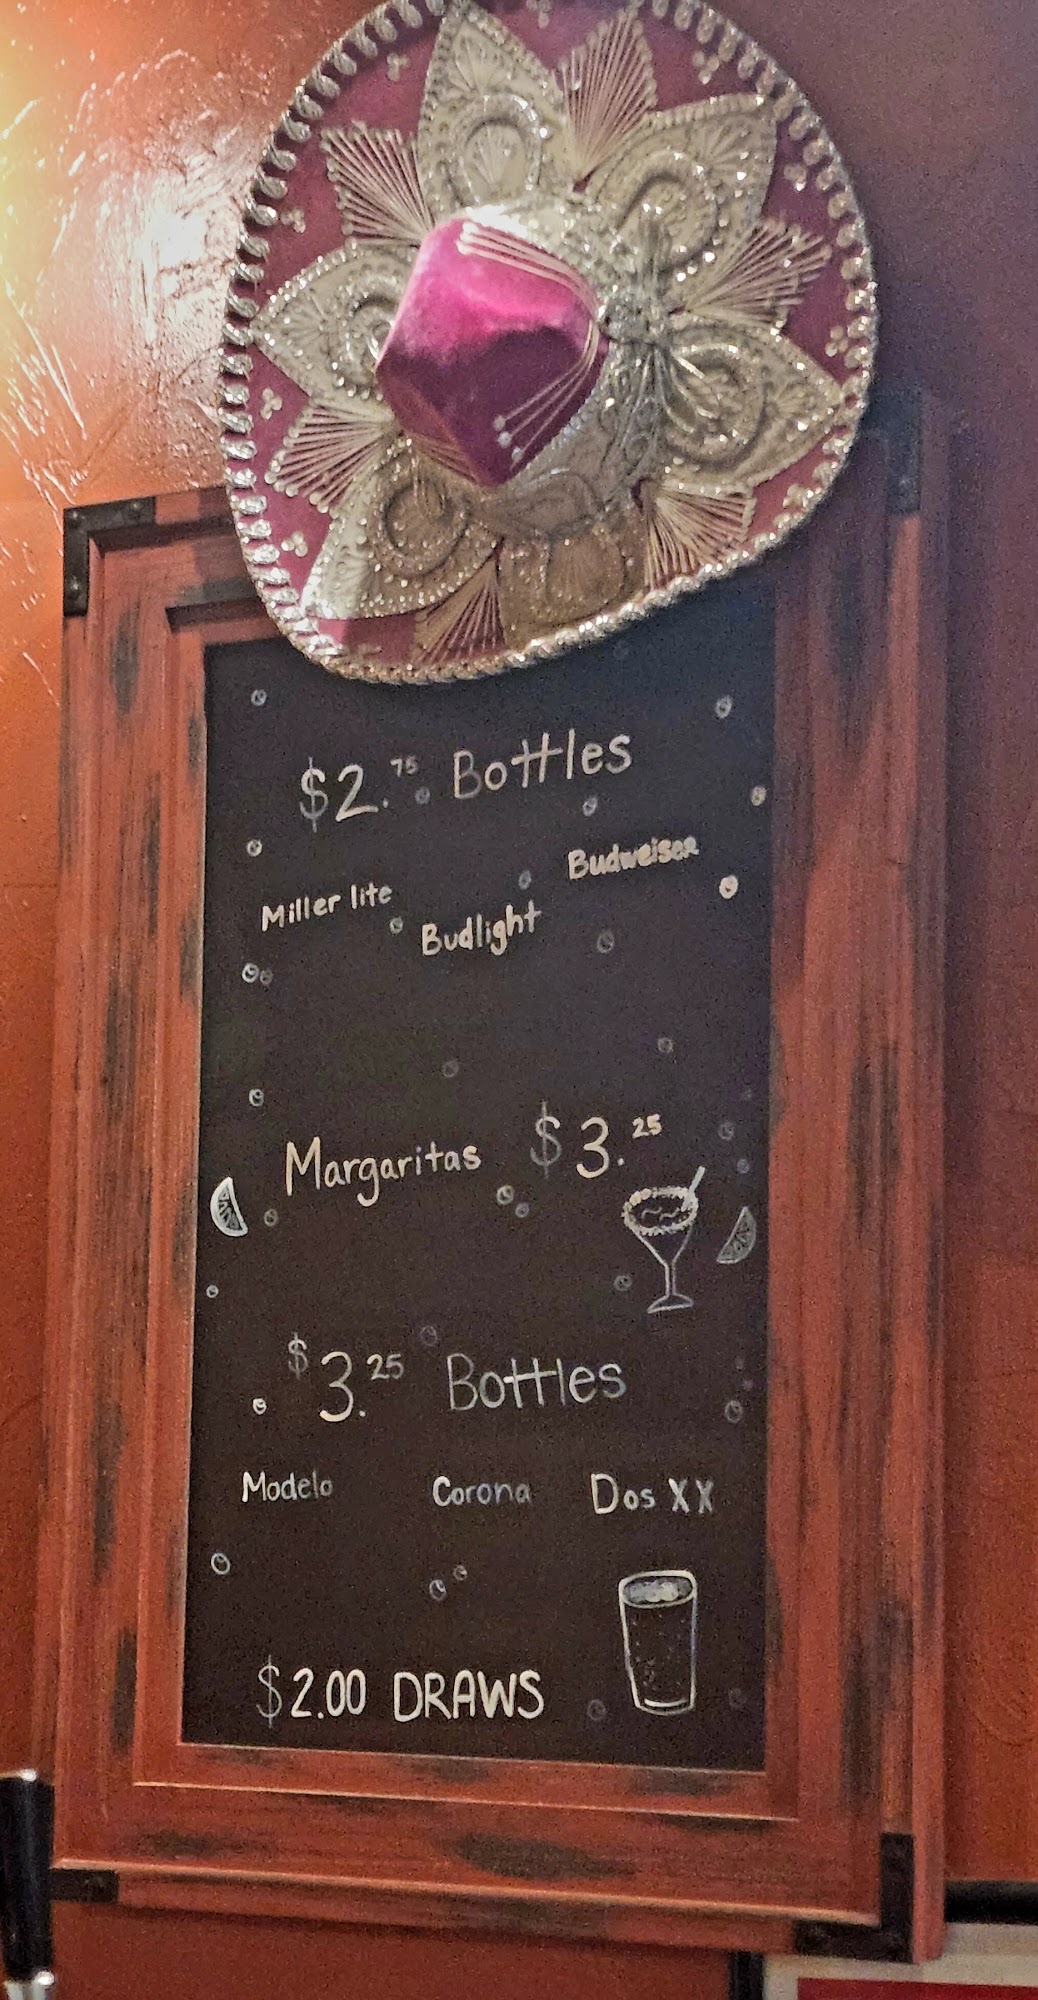 $2.75 Bottles
Miller lite Budlight Budweiser
Margaritas $3.25
$3.25 Bottles
Modelo Corona Dos XX
$2.00 DRAWS